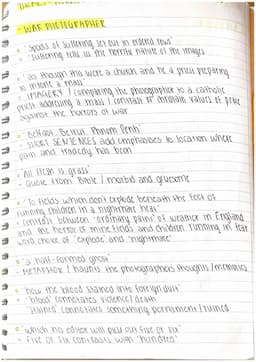 - WAR PHOTOGRAPHER
- 'spools of suffering set out in ordered rows'
- 'suffering' tells us the horrific nature of the images
- 'as though this were a church and he a priest preparing
to intone a mass'
- IMAGERY / comparing the photographer to a catholic
priest addressing a mass / contrasts of christian values of peace
against the horrors of war
- 'Belfast. Beirut. Phnom Penh.'
- SHORT SENTENCES add emphasises to location where
pain and tragedy has been
- 'All flesh is grass'
- Quote from Bible / morbid and gruesome
- 'To fields which don't explode beneath the feet of
running children in a nightmare heat'
- contrast between 'ordinary pain' of weather in England
and the horror of mine fields and children running in fear
word choice of 'explode' and 'nightmare'
- 'a half-formed ghost'
- METAPHOR / haunts the photographers thoughts / memories
- 'how the blood stained into foreign dust'
- 'blood' connotates violence / death
- 'stained' connotates something permanent / ruined
- 'which his editor will pick out five or six'
- five or six contrasts with 'hundred'